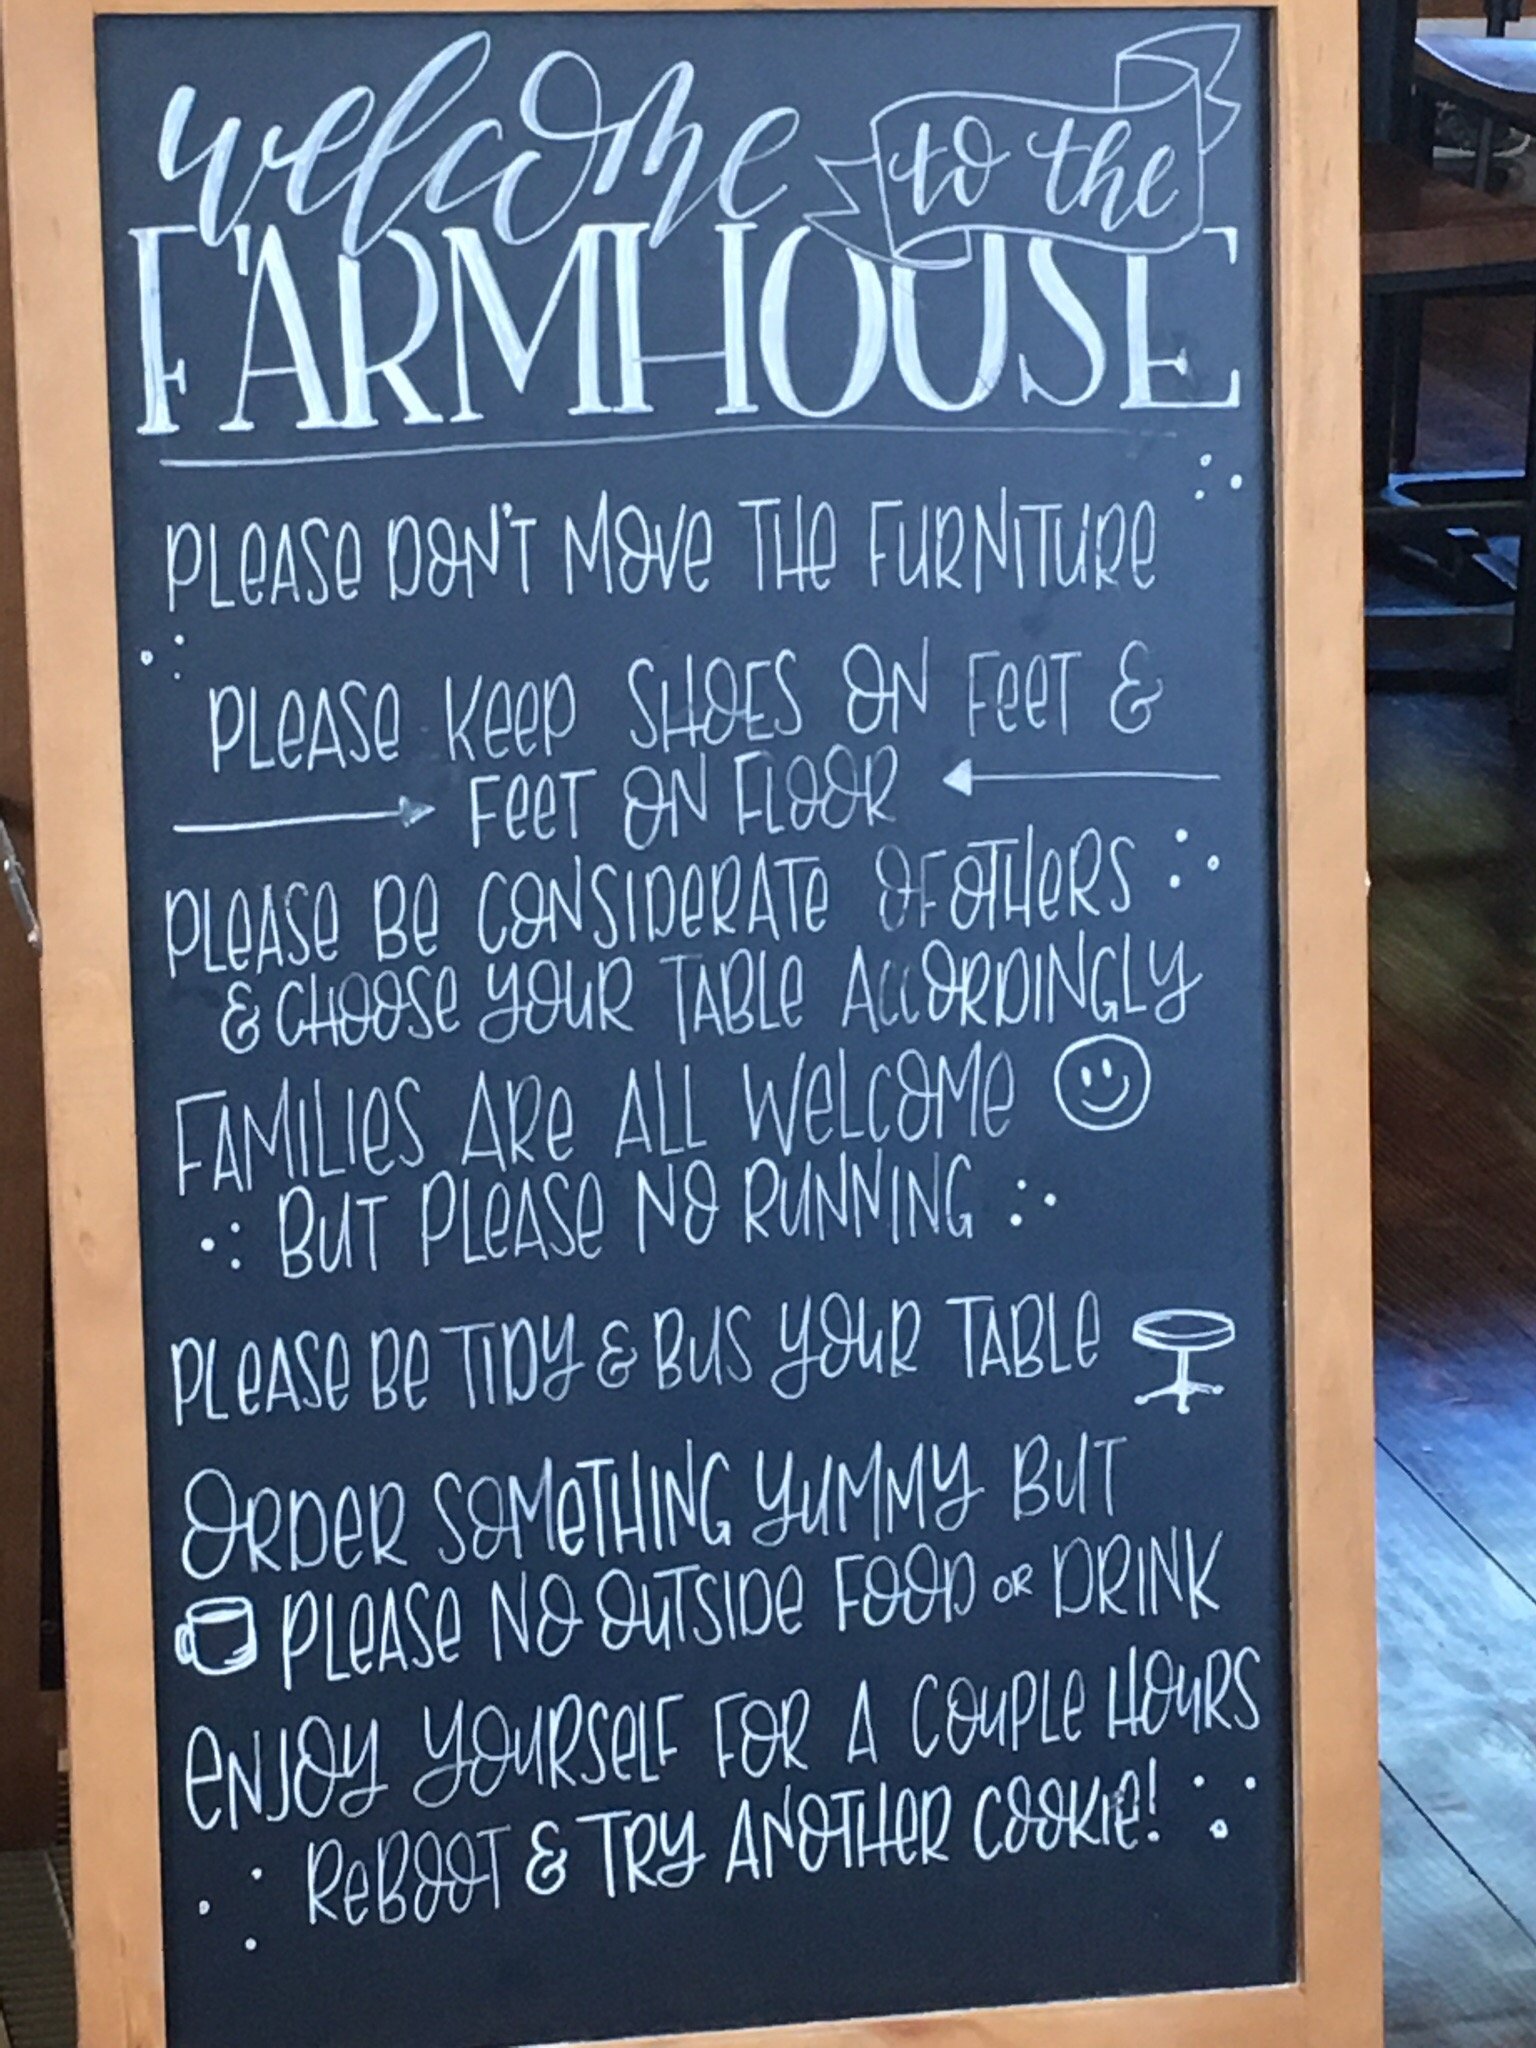 welcome to the
FARMHOUSE
PLeASe DON'T MOVe THe FURNITURe
PLeASe KeeP SHOES ON FeeT &
FeeT ON FLOOR
PLeASe Be CONSIDeRATe OF OTHeRS
& CHOOSe YOUR TABLe ACCORDINGLY
FAMILIeS ARe ALL WeLCOMe
BUT PLeASe NO RUNNING
PLeASe Be TIDY & BUS YOUR TABLe
ORDeR SOMeTHING YUMMY BUT
PLeASe NO OUTSIDe FOOD OR DRINK
eNJOY YOURSeLF FOR A COUPLe HOURS
ReBOOT & TRY ANOTHeR COOKIe!